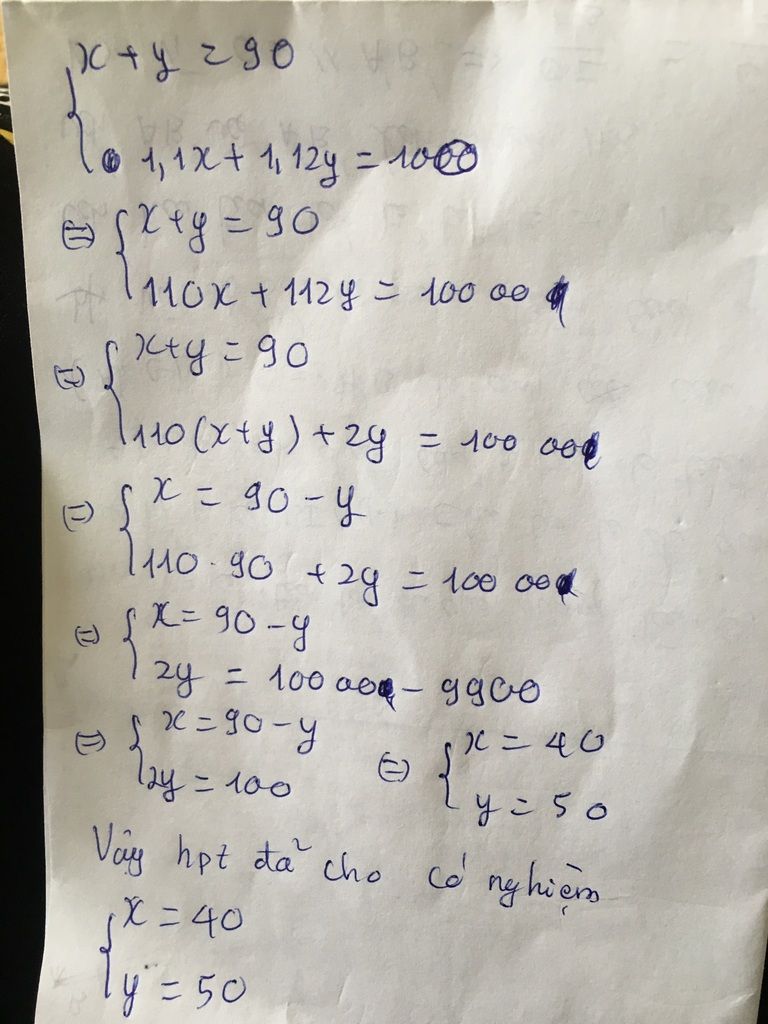 x + y = 90
1,1x + 1,12y = 100
⇔ x + y = 90
110x + 112y = 100 00
⇔ x + y = 90
110(x + y) + 2y = 100 00
⇔ x = 90 - y
110 . 90 + 2y = 100 00
⇔ x = 90 - y
2y = 100 00 - 9900
⇔ x = 90 - y ⇔ x = 40
2y = 100 y = 50
Vậy hpt đã cho có nghiệm
x = 40
y = 50